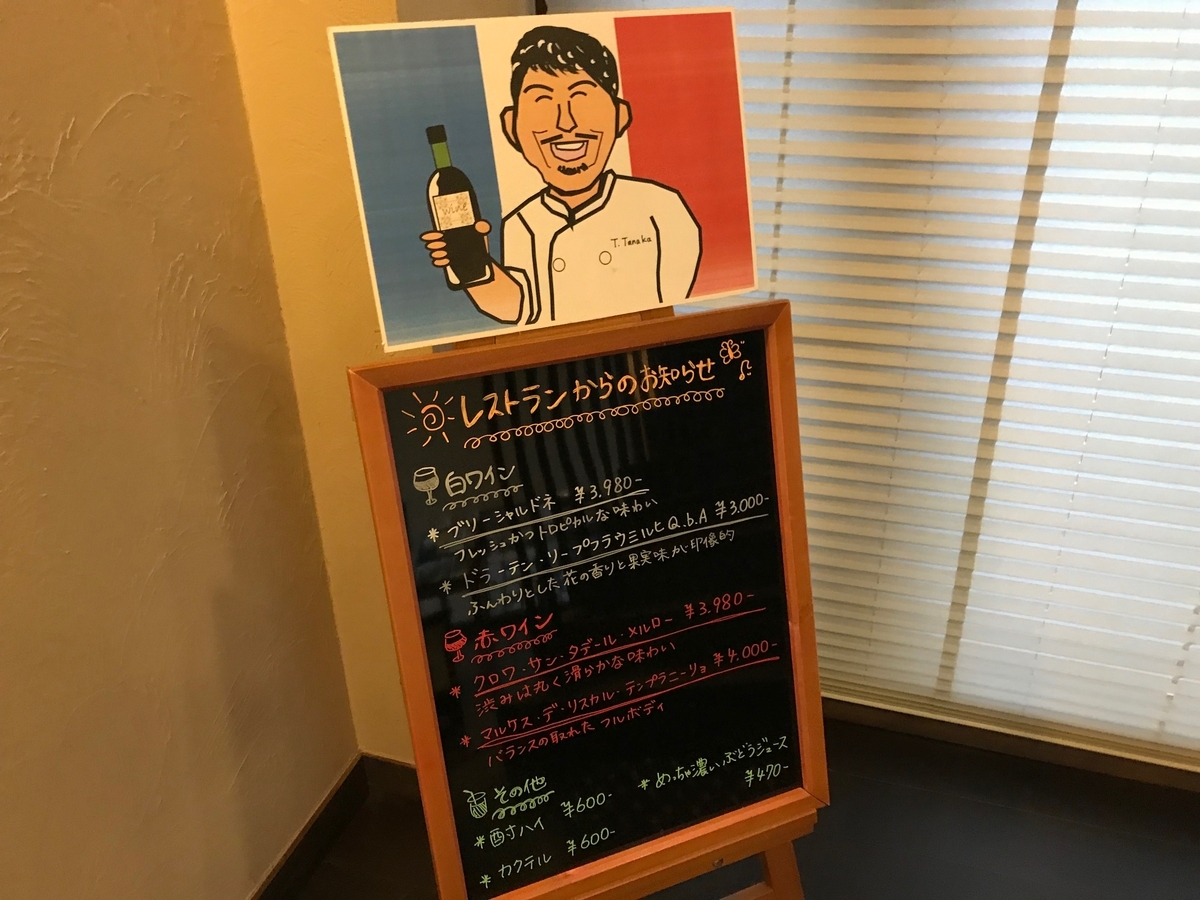 WINE
T. Tanaka
レストランからのお知らせ
白ワイン
* ブソーシャルドネ ¥3.980-
フレッシュかつトロピカルな味わい
* ドラーテン・リープフラウミルヒ Q.b.A ¥3.000-
ふんわりとした花の香りと果実味が印像的
赤ワイン
* クロワ・サン・タデール・メルロー ¥3.980-
渋みは丸く滑らかな味わい
* マルケス・デ・リスカル・テンプラニーリョ ¥4.000-
バランスの取れたフルボディ
その他
* 酎ハイ ¥600-
* カクテル ¥600-
* めっちゃ濃いぶどうジュース
¥470-